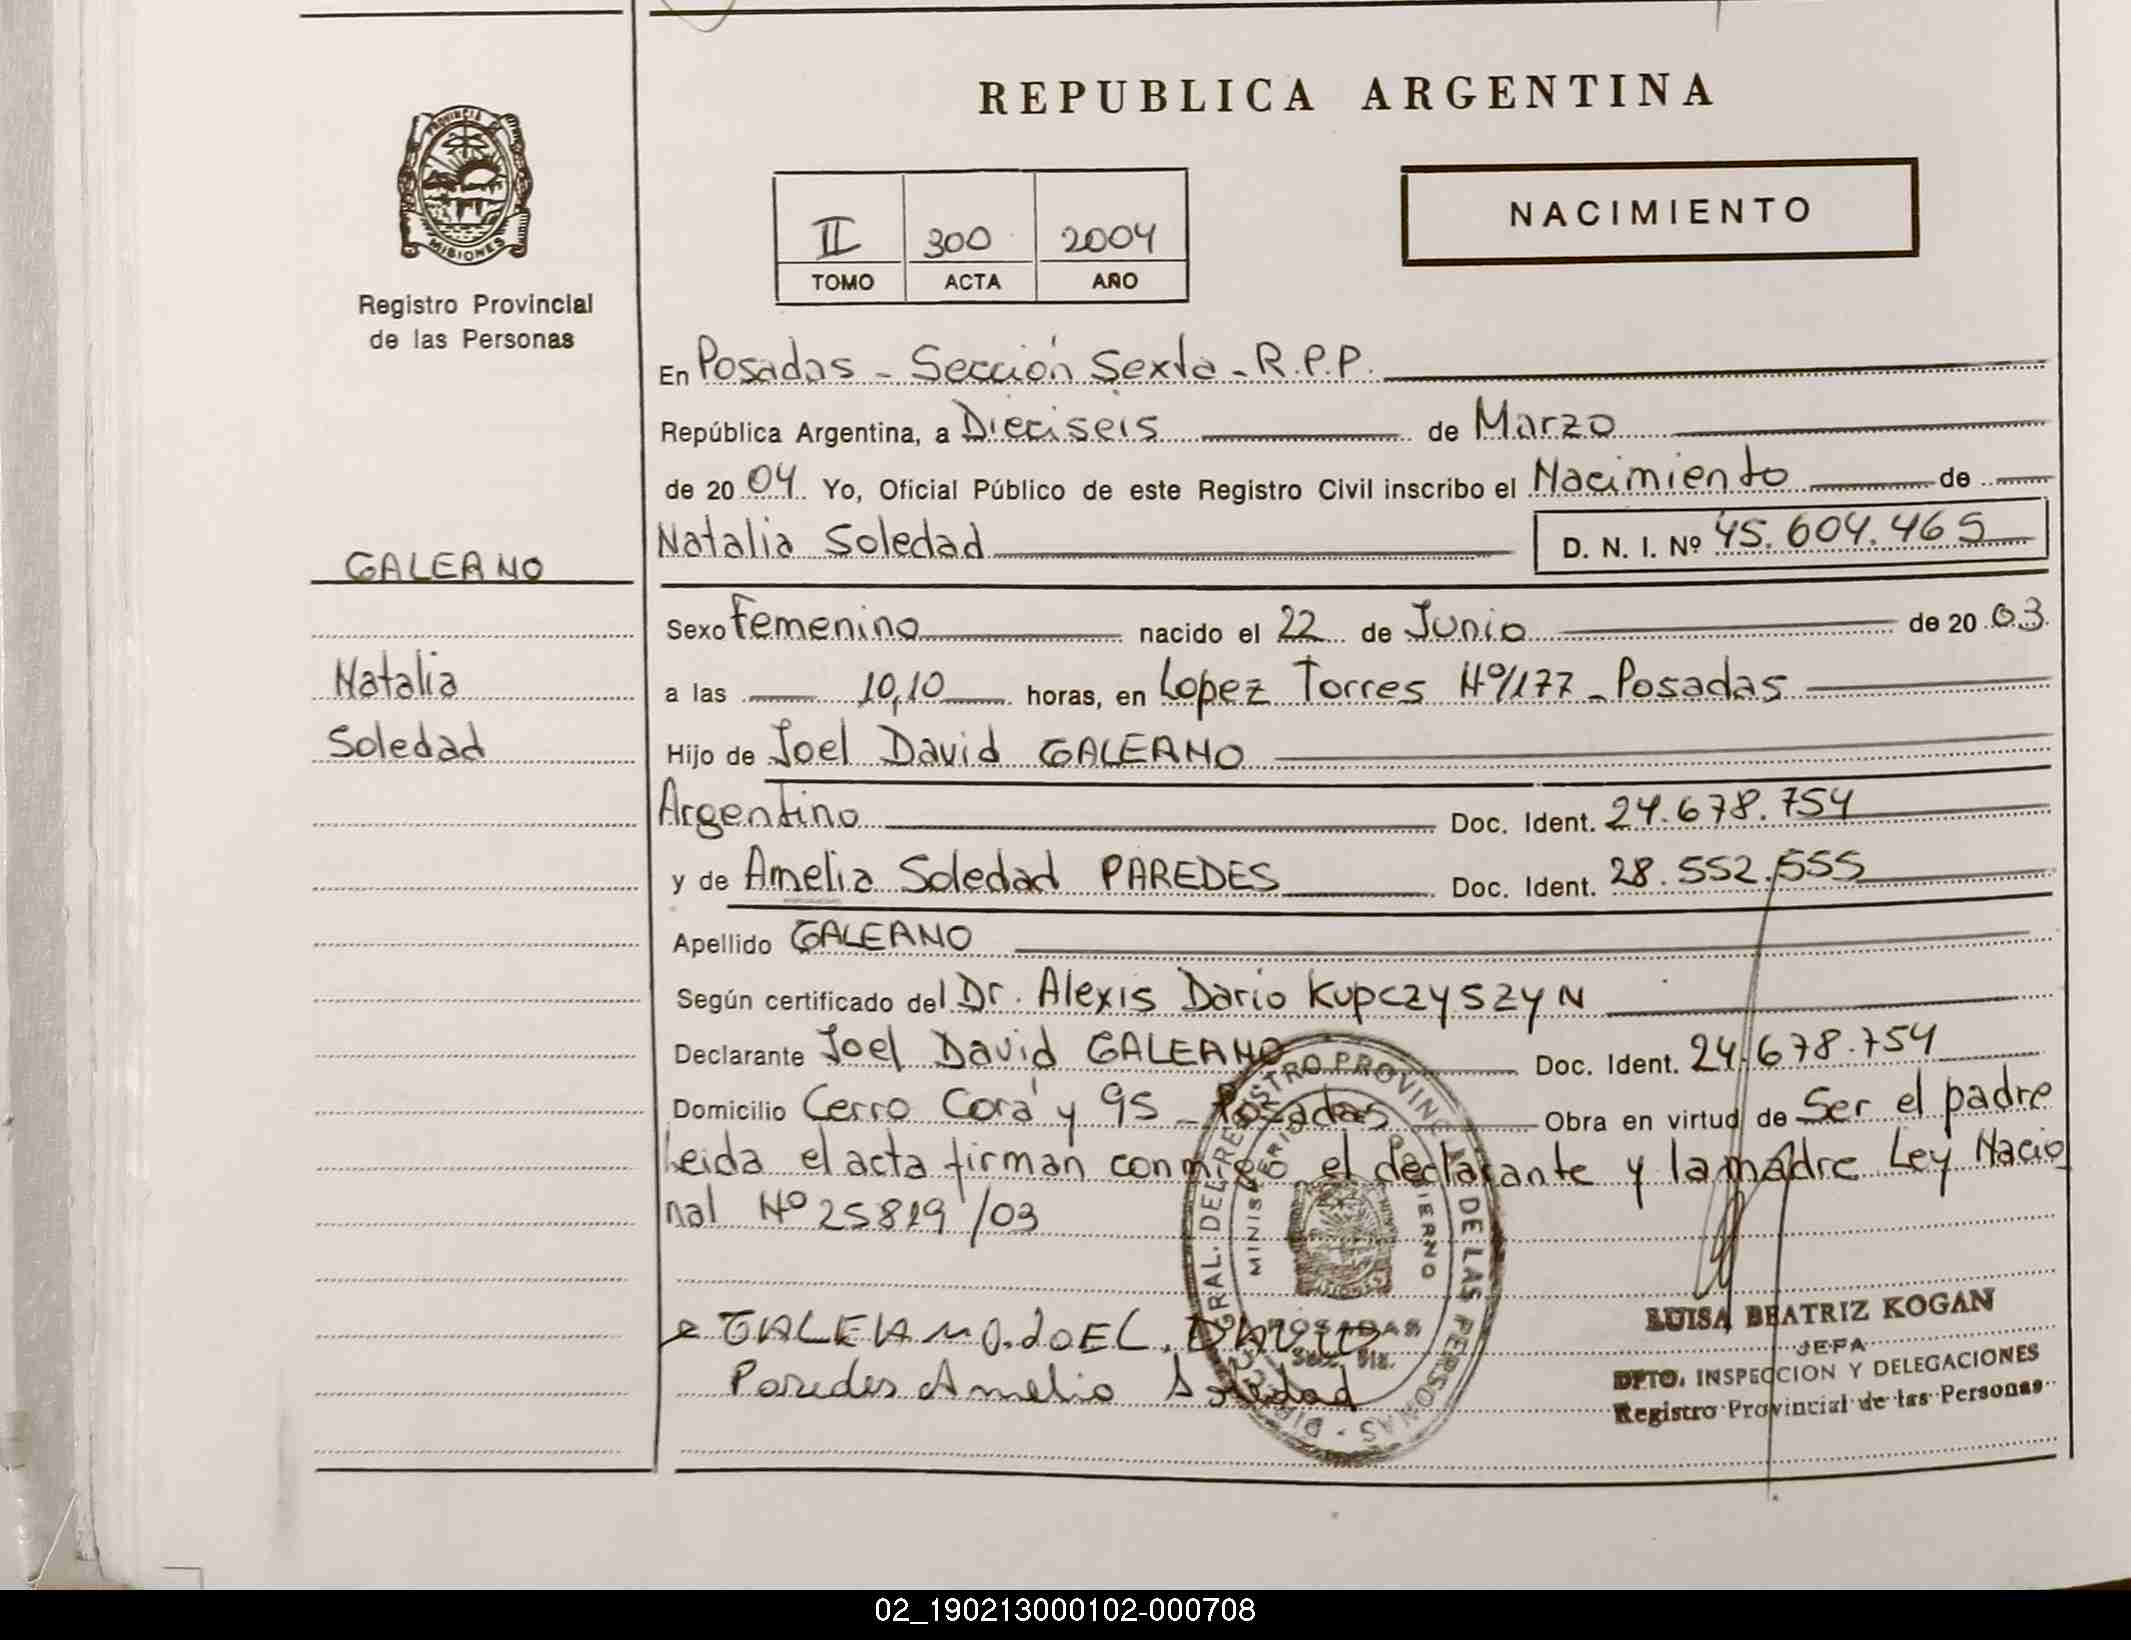 REPUBLICA ARGENTINA
PROVINCIA DE
MISIONES
Registro Provincial
de las Personas
II 300 2004
TOMO ACTA AÑO
NACIMIENTO
En Posadas - Sección Sexta - R.P.P.
República Argentina, a Dieciseis de Marzo
de 2004 Yo, Oficial Público de este Registro Civil inscribo el Nacimiento de
Natalia Soledad D. N. I. Nº 45.604.465
GALEANO
Natalia
Soledad
Sexo Femenino nacido el 22 de Junio de 2003
a las 10,10 horas, en Lopez Torres Nº 1177 - Posadas
Hijo de Joel David GALEANO
Argentino Doc. Ident. 24.678.754
y de Amelia Soledad PAREDES Doc. Ident. 28.552.555
Apellido GALEANO
Según certificado del Dr. Alexis Dario KUPCZYSZYN
Declarante Joel David GALEANO Doc. Ident. 24.678.754
Domicilio Cerro Corá y 95 - Posadas Obra en virtud de Ser el padre
Leida el acta firman conmigo el declarante y la madre Ley Nacio
nal Nº 25819/03
GALEANO. JOEL. DAVID
Paredes Amelia Soledad
DIRECC. GRAL. DEL REGISTRO PROVINCIAL DE LAS PERSONAS
MINISTERIO DE GOBIERNO
POSADAS
Secc. 6ta.
LUISA BEATRIZ KOGAN
JEFA
DPTO. INSPECCION Y DELEGACIONES
Registro Provincial de las Personas
02_190213000102-000708